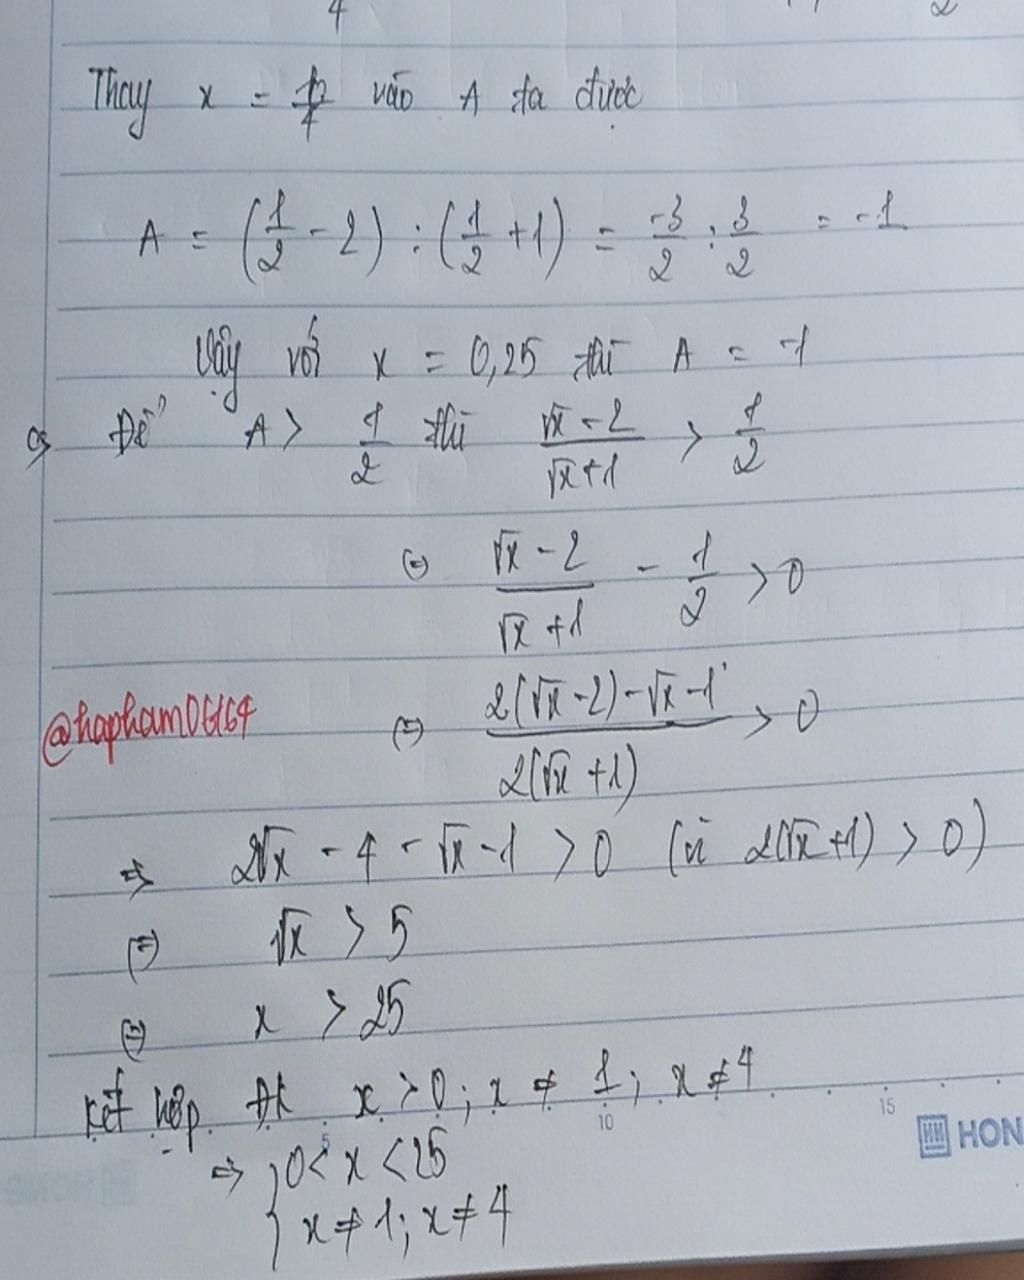 4 2
Thay x = 1/4 vào A ta được
A = (1/2 - 2) : (1/2 + 1) = -3/2 : 3/2 = -1
Vậy với x = 0,25 thì A = -1
Để A > 1/2 thì (√x - 2)/(√x + 1) > 1/2
(=) (√x - 2)/(√x + 1) - 1/2 > 0
@hapham06164 (=) (2(√x - 2) - √x - 1)/(2(√x + 1)) > 0
=> 2√x - 4 - √x - 1 > 0 (vì 2(√x + 1) > 0)
(=) √x > 5
(=) x > 25
Kết hợp ĐK x > 0; x ≠ 1; x ≠ 4
5 10 15 HON
=> { 0 < x < 25
x ≠ 1; x ≠ 4